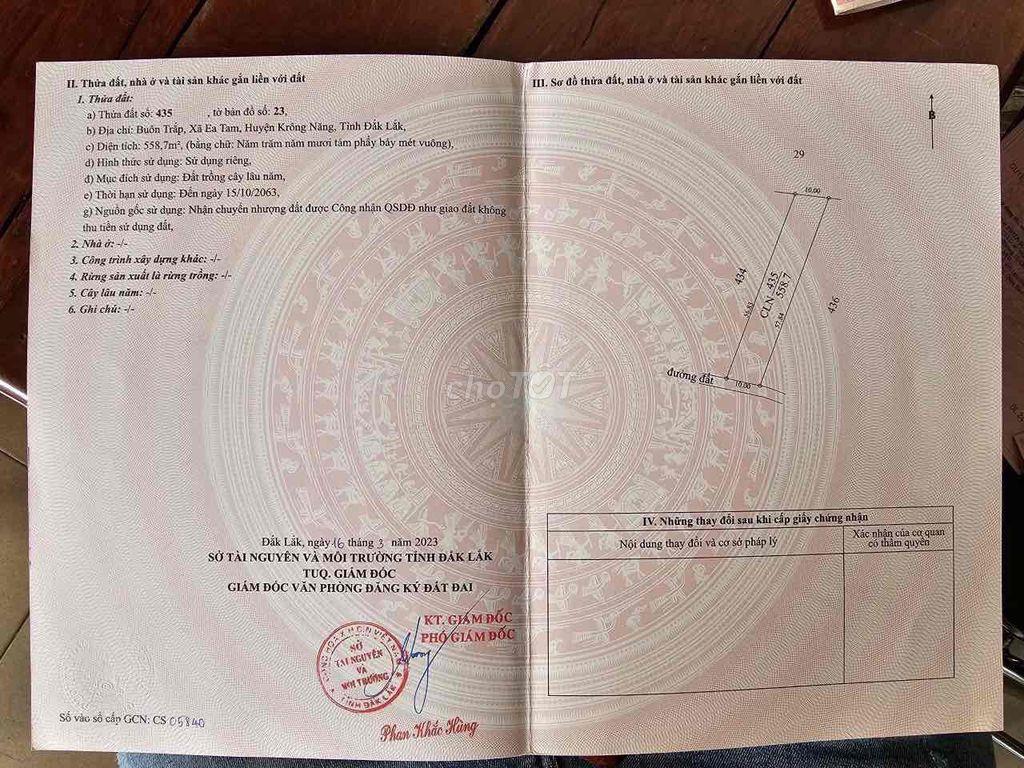 II. Thửa đất, nhà ở và tài sản khác gắn liền với đất
1. Thửa đất:
a) Thửa đất số: 435 , tờ bản đồ số: 23,
b) Địa chỉ: Buôn Trắp, Xã Ea Tam, Huyện Krông Năng, Tỉnh Đắk Lắk,
c) Diện tích: 558,7m², (bằng chữ: Năm trăm năm mươi tám phẩy bảy mét vuông),
d) Hình thức sử dụng: Sử dụng riêng,
đ) Mục đích sử dụng: Đất trồng cây lâu năm,
e) Thời hạn sử dụng: Đến ngày 15/10/2063,
g) Nguồn gốc sử dụng: Nhận chuyển nhượng đất được Công nhận QSDĐ như giao đất không
thu tiền sử dụng đất,
2. Nhà ở: -/-
3. Công trình xây dựng khác: -/-
4. Rừng sản xuất là rừng trồng: -/-
5. Cây lâu năm: -/-
6. Ghi chú: -/-
Đắk Lắk, ngày 16 tháng 3 năm 2023
SỞ TÀI NGUYÊN VÀ MÔI TRƯỜNG TỈNH ĐẮK LẮK
TUQ. GIÁM ĐỐC
GIÁM ĐỐC VĂN PHÒNG ĐĂNG KÝ ĐẤT ĐAI
KT. GIÁM ĐỐC
PHÓ GIÁM ĐỐC
SỞ
TÀI NGUYÊN
VÀ
MÔI TRƯỜNG
TỈNH ĐẮK LẮK
Phan Khắc Hùng
Số vào sổ cấp GCN: CS 05840
III. Sơ đồ thửa đất, nhà ở và tài sản khác gắn liền với đất
B
29
10.00
434
CLN 435
558.7
56.83
57.84
436
đường đất
10.00
choTỐT
IV. Những thay đổi sau khi cấp giấy chứng nhận
Nội dung thay đổi và cơ sở pháp lý
Xác nhận của cơ quan
có thẩm quyền